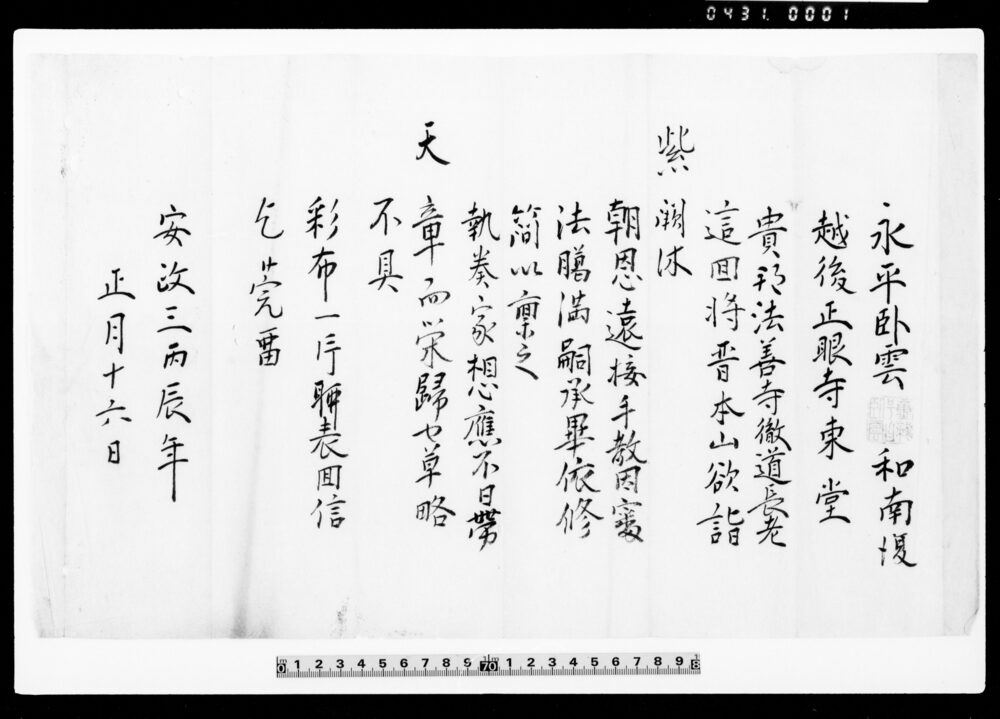 0431. 0001
永平卧雲 和南復
越後正眼寺東堂
貴邦法善寺徹道長老
這回将晋本山欲詣
紫
闕沐
朝恩遠接手教因審
法臈満嗣承畢依修
簡以稟之
執奏家想應不日帯
天
章而栄歸也草略
不具
彩布一片聊表回信
乞莞畱
安政三丙辰年
正月十六日
0 1 2 3 4 5 6 7 8 9 70 1 2 3 4 5 6 7 8 9 8